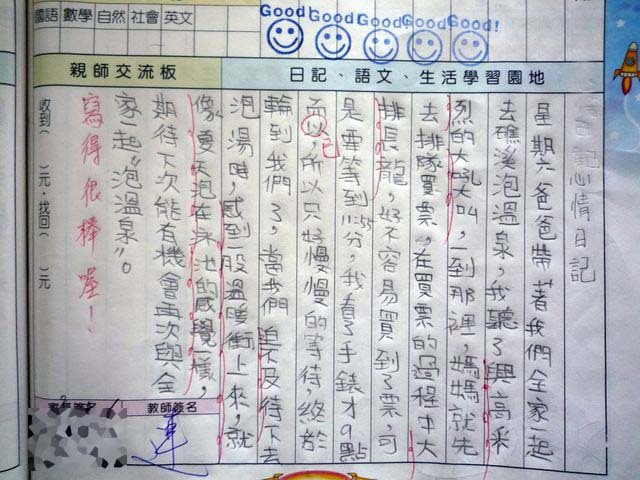 國語 數學 自然 社會 英文
Good! Good! Good! Good! Good!
日記、語文、生活學習園地
親師交流板
日記心情日記
星期六爸爸帶著我們全家一起
去礁溪泡溫泉,我聽了興高采
烈的大吼大叫,一到那裡,媽媽就先
去排隊買票,在買票的過程中大
排長龍,好不容易買到了票,可
是要等到11:55分,我看了手錶才9點
而以,所以只好慢慢的等待,終於
已
輪到我們了,當我們迫不及待下去
泡湯時,感到一股溫暖衝上來,就
像夏天泡在泳池的感覺一樣,
期待下次能有機會再次與全
家一起"泡溫泉"。
寫得很棒喔!
收到( )元,找回( )元
家長簽名
教師簽名
連